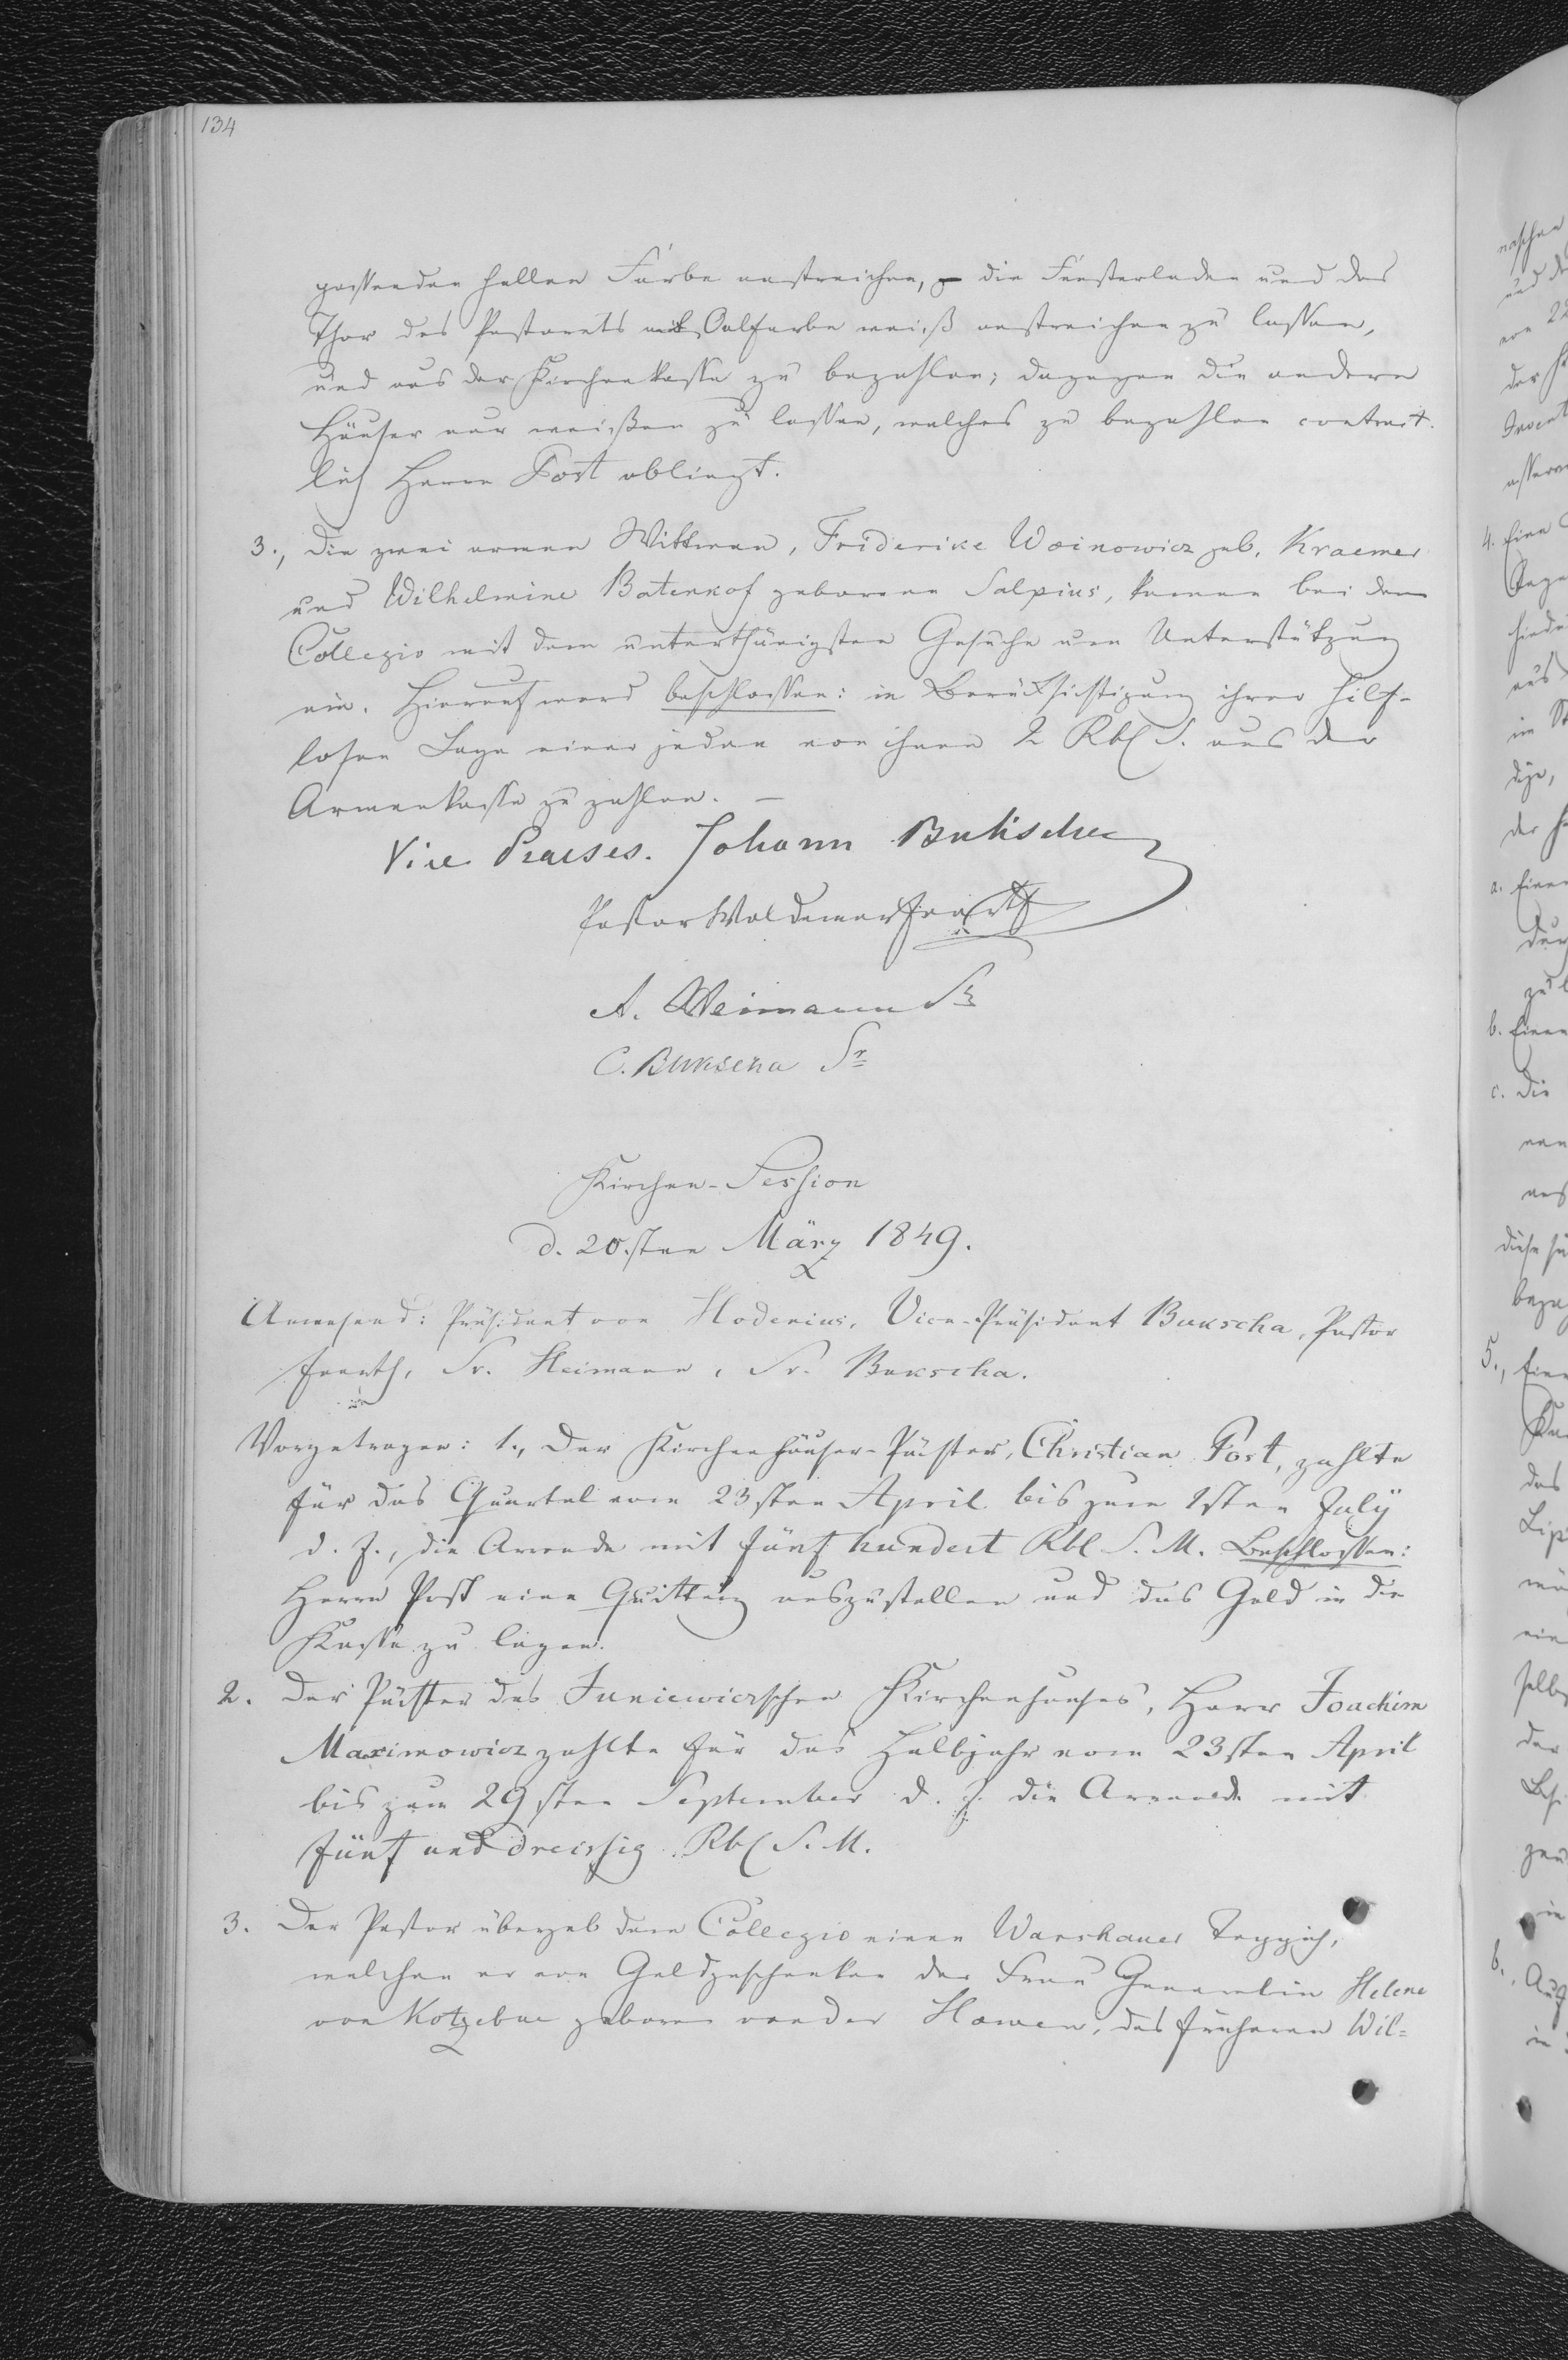 134
passenden hellen Farbe anstreichen, die Fensterladen und das
Thor des Pastorats mit Oelfarbe weiß anstreichen zu lassen,
und aus der Kirchenkasse zu bezahlen; dagegen die andern
Häuser nur weißen zu lassen, welches zu bezahlen contract-
lich Herrn Post obliegt.
3., Die zwei armen Wittwen, Friderike Woinowicz geb. Kraemer
und Wilhelmine Batenkof geborene Salpius, kamen bei dem
Collegio mit dem unterthänigsten Gesuche um Unterstützung
ein. Hierauf ward beschlossen: in Berücksichtigung ihrer hilf-
losen Lage einer jeden von ihnen 2 Rbl S. aus der
Armenkasse zu zahlen. —
Vice Praeses. Johann Bukscha
Pastor Woldemar
A. Heimann Sr
C. Bukscha Sr
Kirchen-Session
d. 20sten März 1849.
Anwesend: Präsident von Hodenius, Vice-Präsident Bukscha, Pastor
Sr. Heimann, Sr. Bukscha.
Vorgetragen: 1., Der Kirchenhäuser-Pächter, Christian Post, zahlte
für das Quartal vom 23sten April bis zum 1sten July
d. J., die Arrende mit fünf hundert Rbl S. M. Beschlossen:
Herrn Post eine Quittung auszustellen und das Geld in die
Kasse zu legen.
2. Der Pächter des Juniewiczschen Kirchenhauses, Herr Joachim
Maximowicz zahlte für das Halbjahr vom 23sten April
bis zum 29sten September d. J. die Arrende mit
fünf und dreissig Rbl S. M.
3. Der Pastor übergab dem Collegio einen Warshauer Teppich,
welchen er von Geldgeschenken der Frau Generalin Helene
von Kotzebue geborne von der Howen, des früheren Wil=